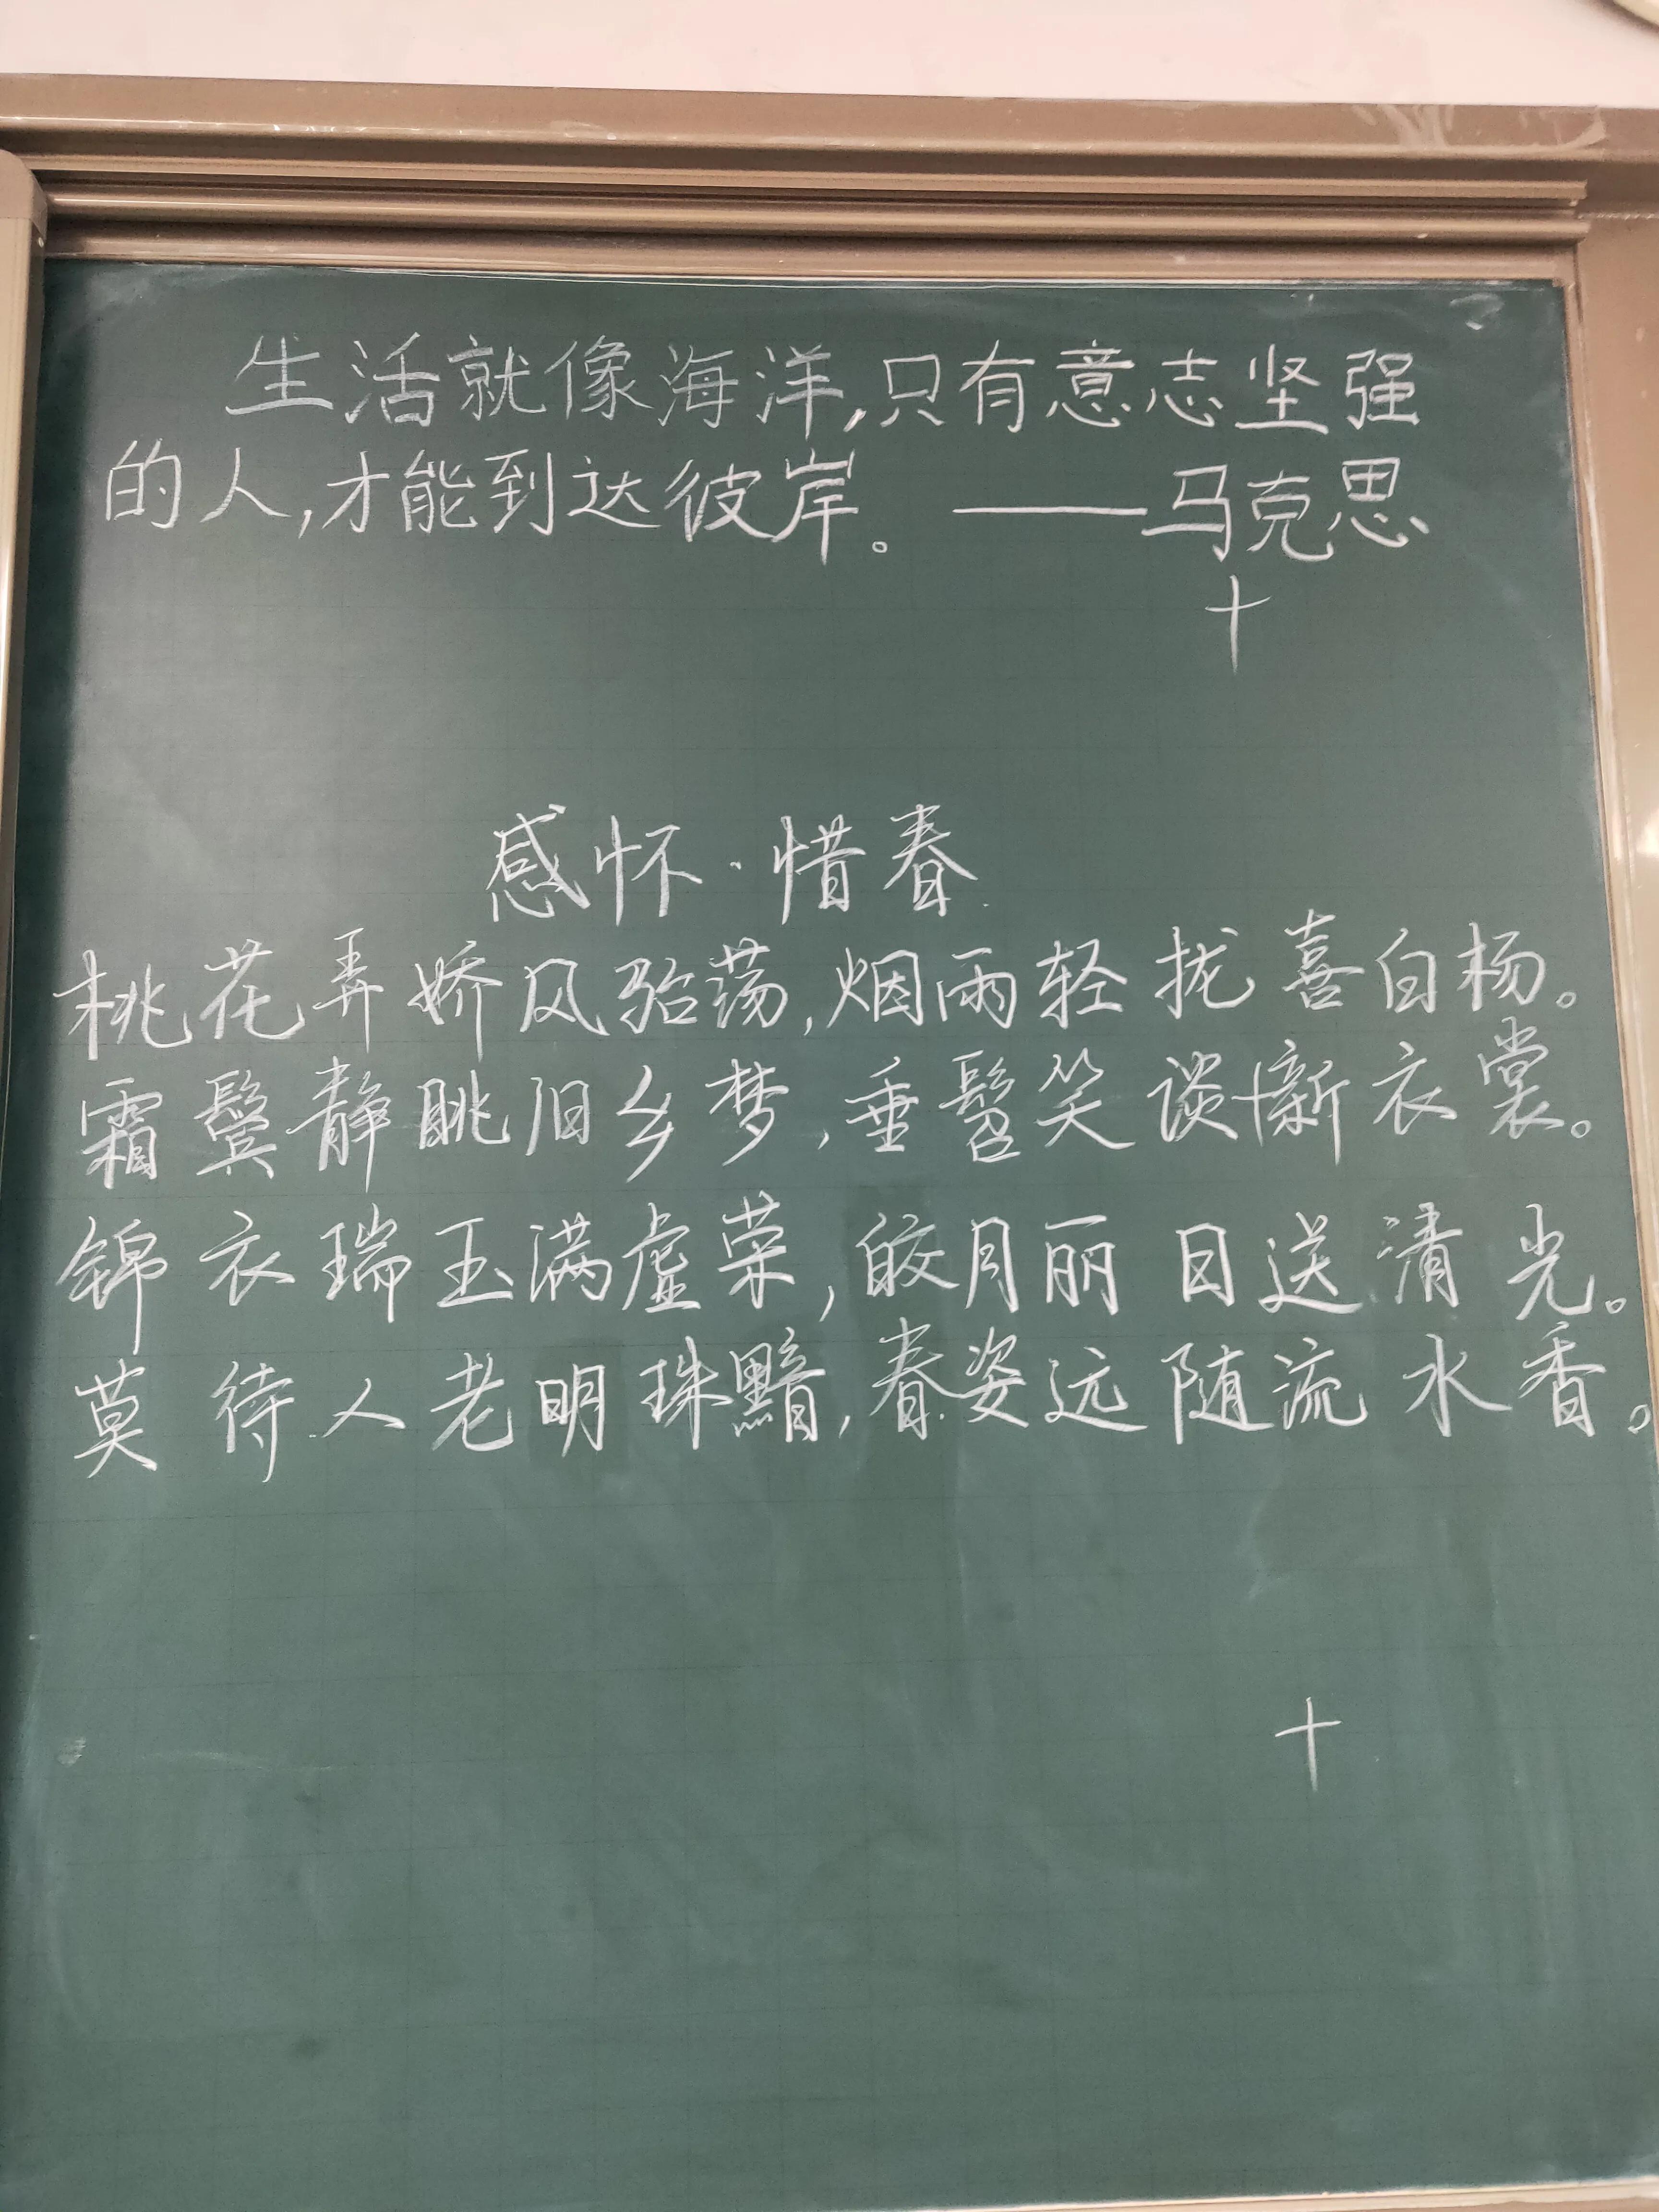 生活就像海洋,只有意志坚强
的人,才能到达彼岸。——马克思
十
感怀·惜春
桃花弄娇风骀荡,烟雨轻拢喜白杨。
霜鬓静眺旧乡梦,垂髫笑谈懒新衣裳。
锦衣瑞玉满虚荣,皎月丽日送清光。
莫待人老明珠黯,春姿远随流水香。
十